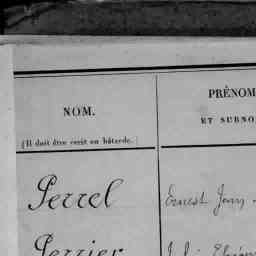 NOM.
PRÉNOM
ET SUBNO
(Il doit être écrit en bâtarde.)
Perrel
Ernest Jean
Perrier